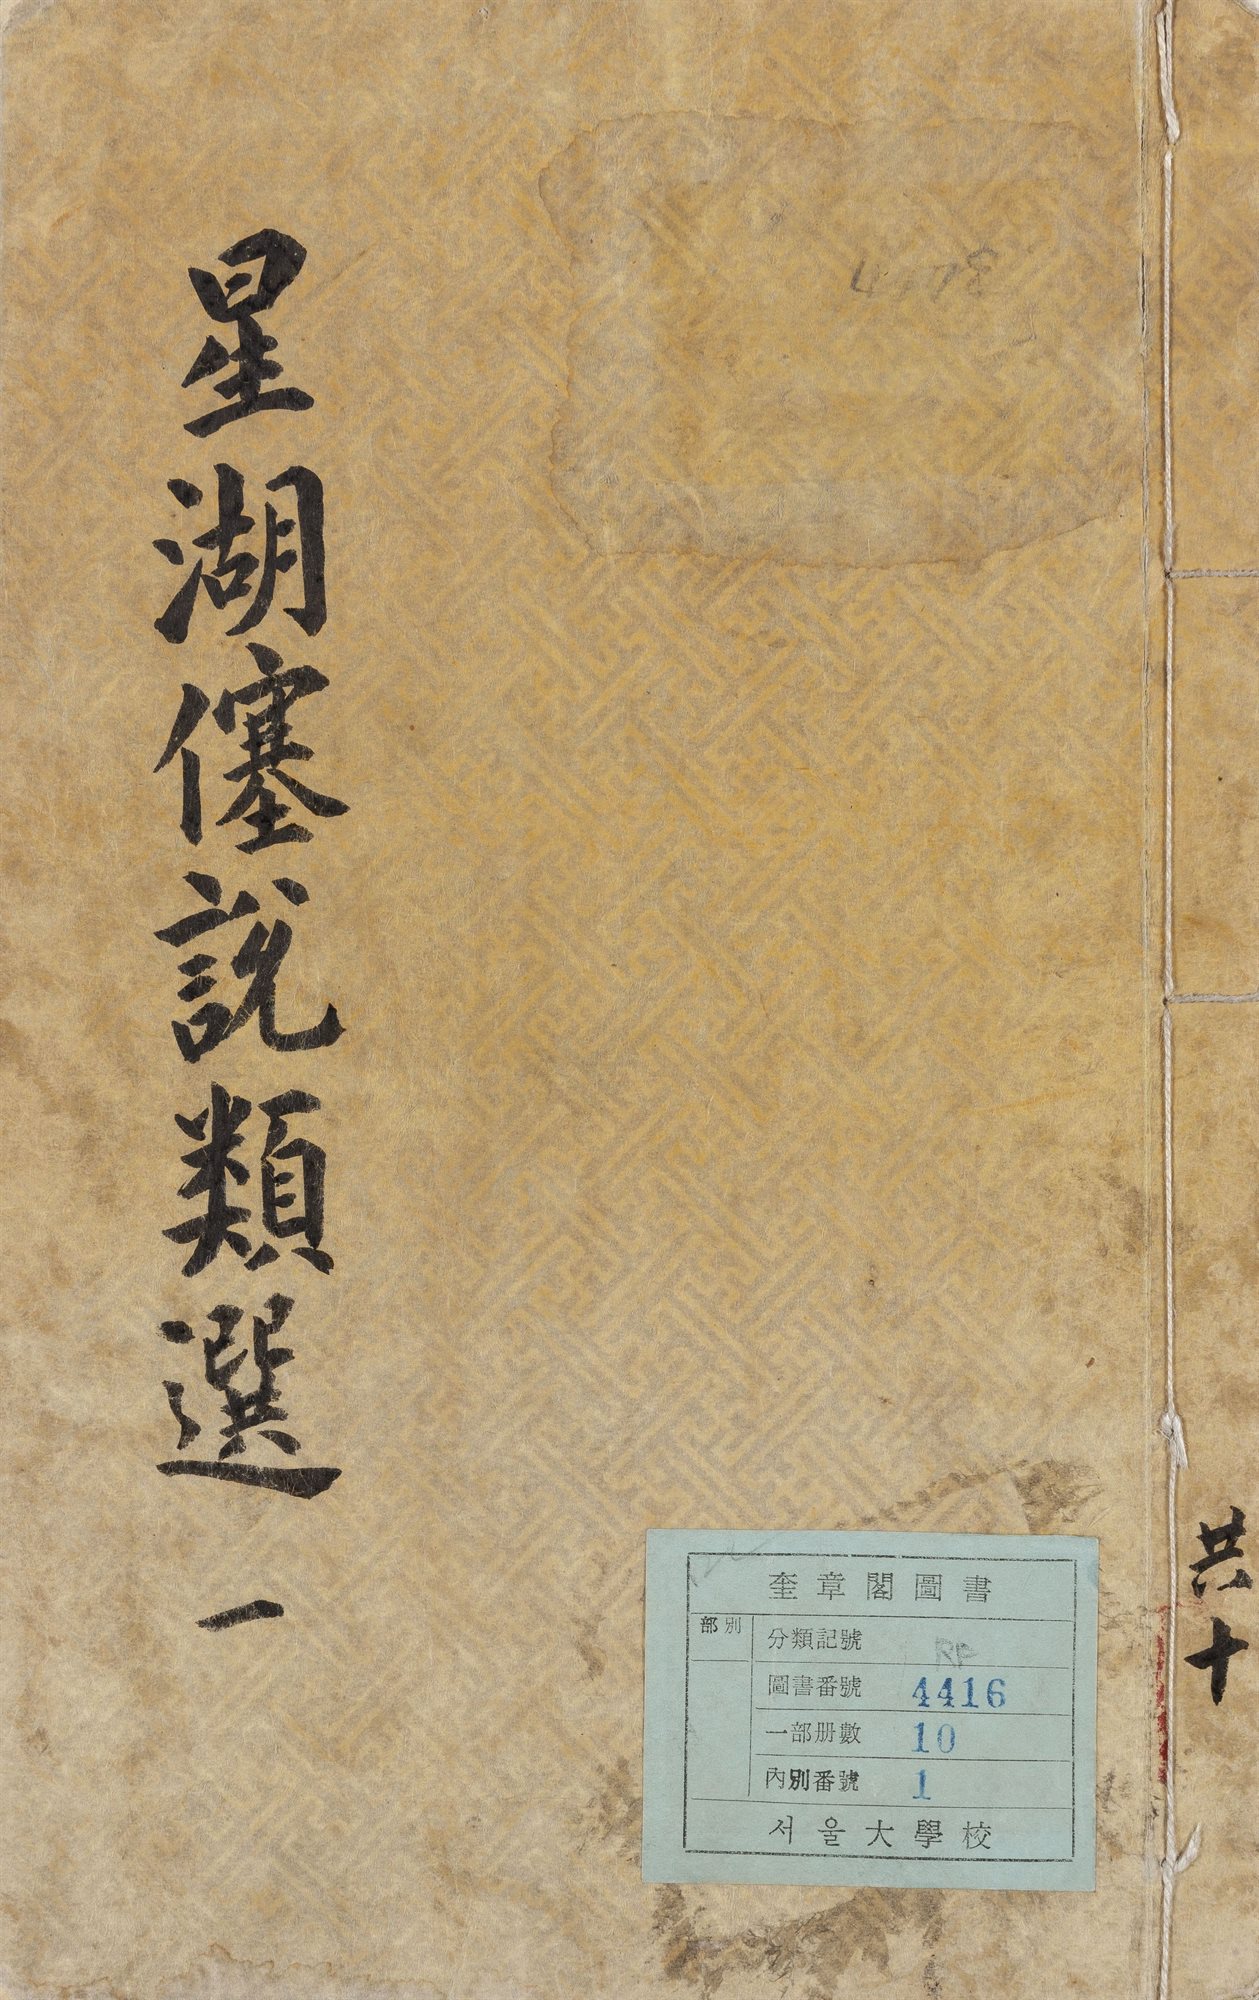 星湖僿説類選 一
共十
奎章閣圖書
部別
分類記號
圖書番號 4416
一部册數 10
內別番號 1
서울大學校